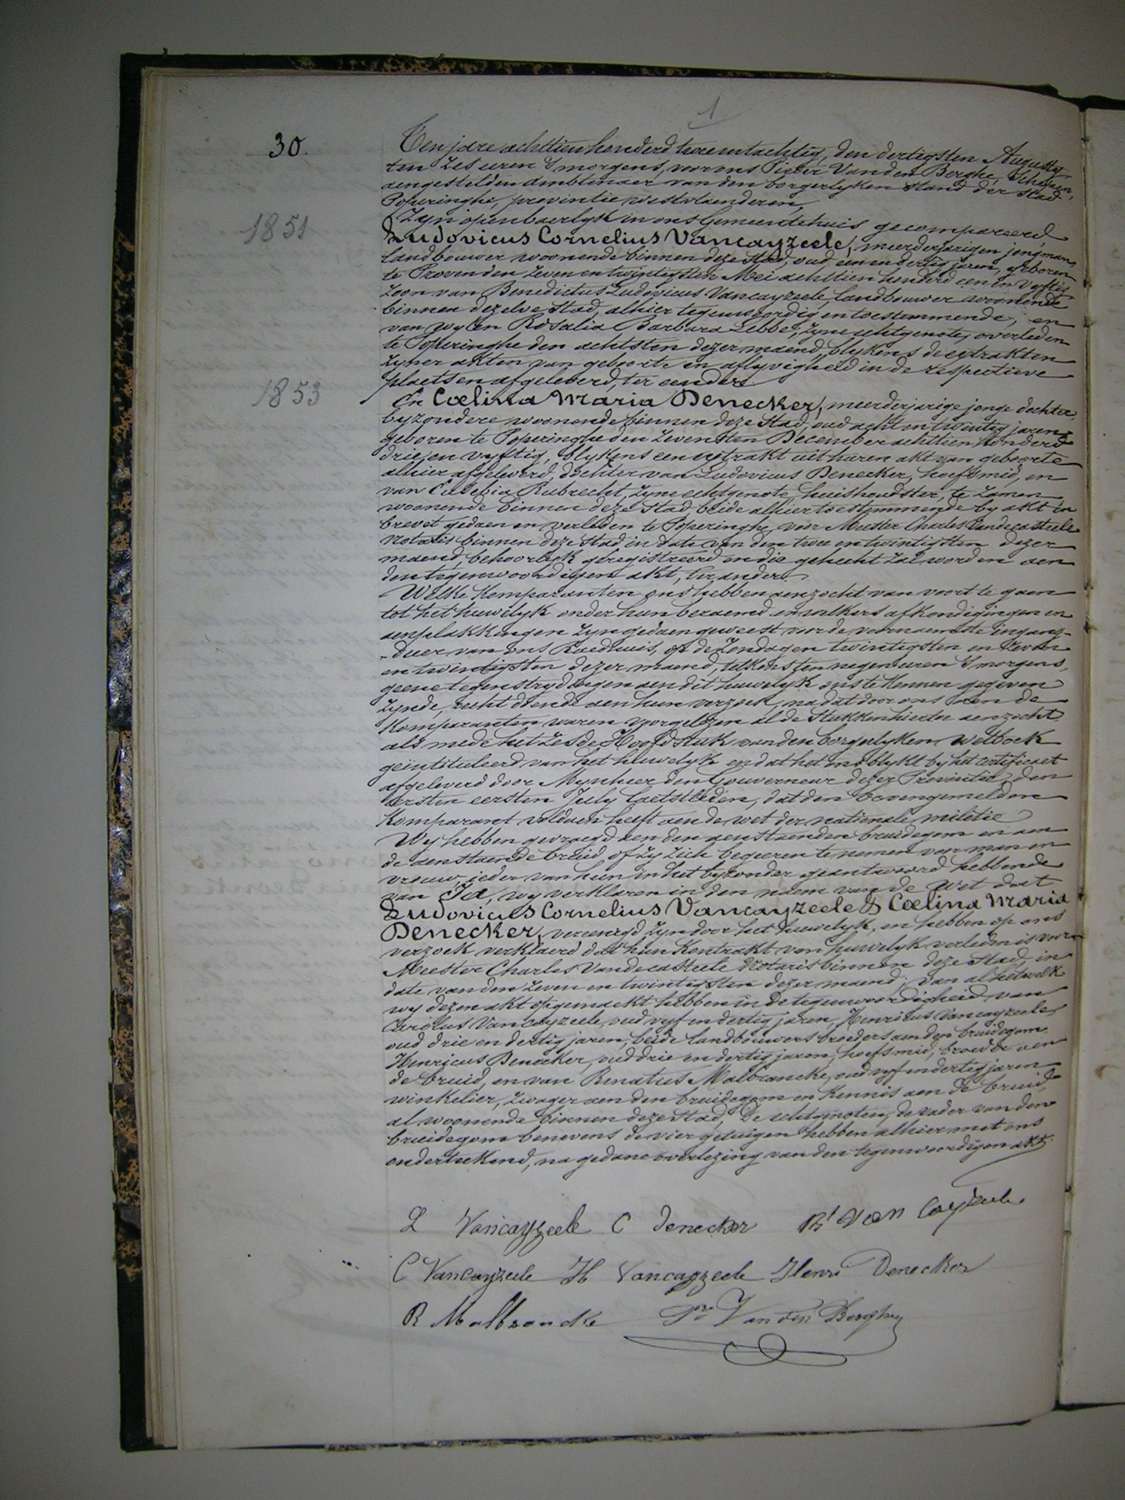 1
30.
Ten jare achttien honderd twee en tachtig, den dertigsten Augusty
ten zes uren 's morgens, voor ons Pieter Vanden Berghe, Schepen,
aengestelden ambtenaer van den borgerlyken stand der stad
Poperinghe, provintie westvlaenderen,
Zyn openbaerlyk in ons Gemeentehuis gecompareerd
1851
Ludovicus Cornelius Vancayzeele, meerderjarigen jongman,
landbouwer woonende binnen deze stad, oud een en dertig jaren, geboren
te Proven den zeven en twintigsten Mei achttien honderd een en vyftig
zoon van Benedictus Ludovicus Vancayzeele landbouwer woonende
binnen dezelve stad, alhier tegenwoordig en toestemmende, en
van wylen Rosalia Barbara Lebbe, zyne echtgenote, overleden
te Poperinghe den achtsten dezer maend, blykens de extrakten
zyner akten van geboorte en aflyvigheid in de respectieve
plaetsen afgeleverd, ter eender
1853
En Cœlina Maria Denecker, meerderjarige jonge dochter,
byzondere woonende binnen deze stad, oud acht en twintig jaren,
geboren te Poperinghe den zevensten December achttien honderd
drie en vyftig, blykens een extrakt uit haren akt van geboorte
alhier afgeleverd, dochter van Ludovicus Denecker, hoefsmid, en
van Rubrecht, zyne echtgenote, huishoudster, te zamen
woonende binnen deze stad, beide alhier toestemmende by akt in
brevet gedaen en verleden te Poperinghe, voor Meester Charles Vandecasteele
Notaris binnen deze stad in date van den twee en twintigsten dezer
maend, behoorlyk geregistreerd en die gehecht zal worden aen
den tegenwoordigen akt, ter ander.
Welke Komparanten ons hebben aenzocht van voort te gaen
tot het huwelyk onder hun beraemd en welkers afkondigingen en
aenplakkingen zyn gedaen geweest voor de voornaemste ingang-
deur van ons Raedhuis, op de zondagen twintigsten en zeven
en twintigsten dezer maend, telkens ten negen uren 's morgens,
geene tegenstrydigheden aen dit huwelyk ons te kennen gegeven
zynde, recht doende aen hun verzoek, na dat door ons aen de
Komparanten waren voorgelezen al de Stukken hierboven aenzocht
als mede het Zesde Hoofdstuk van den borgerlyken Wetboek
geintituleerd van het Huwelyk en dat het ons blykt by het certificaet
afgeleverd door Mynheer den Gouverneur dezer Provintie, den
eersten July laetstleden, dat den bovengemelden
Komparant voldaen heeft aen de wet der nationale militie
Wy hebben gevraegd aen den aenstaenden bruidegom en aen
de aenstaende bruid, of zy zich begeeren te nemen voor man en
vrouw, ieder van hun in het byzonder geantwoord hebbende
van Ja, wy verklaren in den naem van de Wet dat
Ludovicus Cornelius Vancayzeele & Cœlina Maria
Denecker, vereenigd zyn door het huwelyk, en hebben op ons
verzoek verklaerd dat hun Kontrakt van huwelyk verleden is voor
Meester Charles Vandecasteele Notaris binnen deze stad, in
date van den zeven en twintigsten dezer maend. Van al hetwelk
wy dezen akt opgemaekt hebben in de tegenwoordigheid van
Carolus Vancayzeele, oud vyf en dertig jaren, Henricus Vancayzeele,
oud drie en dertig jaren, beide landbouwers broeders aen den bruidegom
Henricus Denecker, oud drie en dertig jaren, hoefsmid, broeder aen
de bruid, en van Renatus Malbrancke, oud vyf en dertig jaren
winkelier, zwager aen den bruidegom en kennis aen de bruid,
al woonende binnen deze stad. De echtgenoten, de vader van den
bruidegom benevens de vier getuigen hebben alhier met ons
onderteekend, na gedane voorlezing van den tegenwoordigen akt.
L Vancayzeele C Denecker Bt Van Cayzeele
C Vancayzeele H Vancayzeele Henri Denecker
R Malbrancke Pre Vanden Berghe